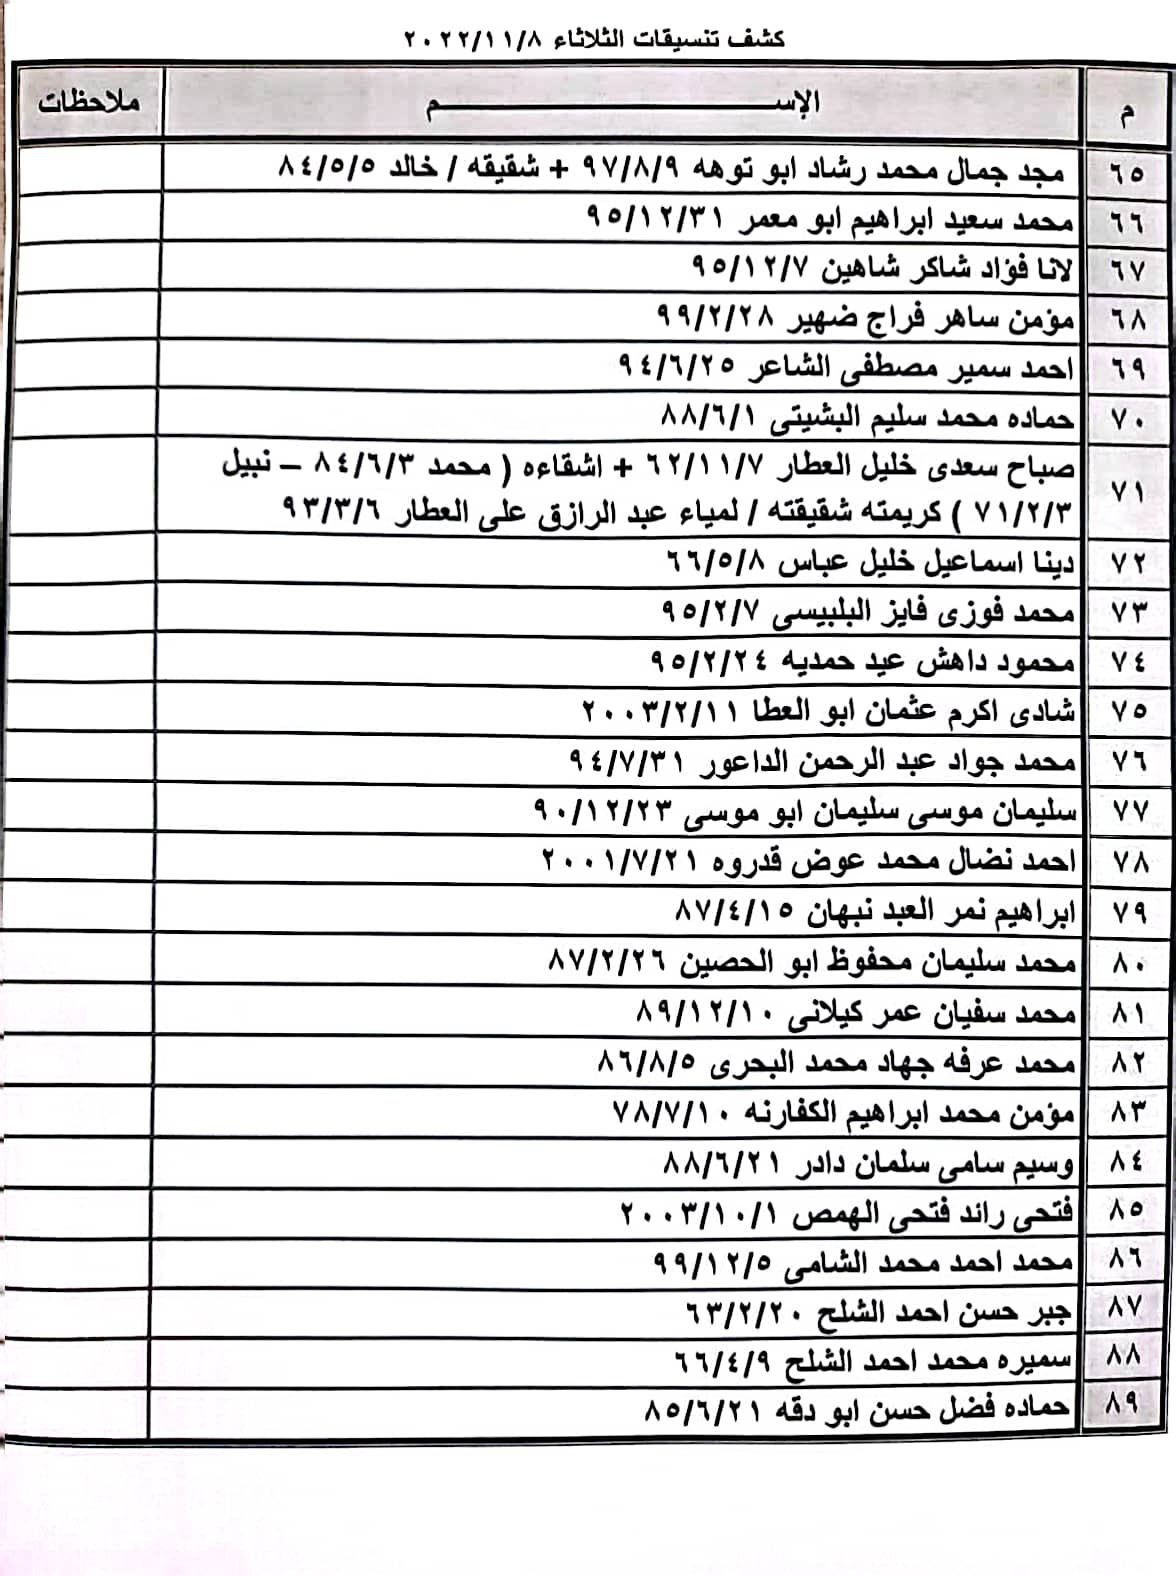 كشف تنسيقات الثلاثاء ٢٠٢٢/١١/٨
م الإســـــم ملاحظات
٦٥ مجد جمال محمد رشاد ابو توهه ٩٧/٨/٩ + شقيقه / خالد ٨٤/٥/٥
٦٦ محمد سعيد ابراهيم ابو معمر ٩٥/١٢/٣١
٦٧ لانا فؤاد شاكر شاهين ٩٥/١٢/٧
٦٨ مؤمن ساهر فراج ضهير ٩٩/٢/٢٨
٦٩ احمد سمير مصطفى الشاعر ٩٤/٦/٢٥
٧٠ حماده محمد سليم البشيتى ٨٨/٦/١
٧١ صباح سعدى خليل العطار ٦٢/١١/٧ + اشقاءه ( محمد ٨٤/٦/٣ – نبيل
٧١/٢/٣ ) كريمته شقيقته / لمياء عبد الرازق على العطار ٩٣/٣/٦
٧٢ دينا اسماعيل خليل عباس ٦٦/٥/٨
٧٣ محمد فوزى فايز البلبيسى ٩٥/٢/٧
٧٤ محمود داهش عيد حمديه ٩٥/٢/٢٤
٧٥ شادى اكرم عثمان ابو العطا ٢٠٠٣/٢/١١
٧٦ محمد جواد عبد الرحمن الداعور ٩٤/٧/٣١
٧٧ سليمان موسى سليمان ابو موسى ٩٠/١٢/٢٣
٧٨ احمد نضال محمد عوض قدروه ٢٠٠١/٧/٢١
٧٩ ابراهيم نمر العبد نبهان ٨٧/٤/١٥
٨٠ محمد سليمان محفوظ ابو الحصين ٨٧/٢/٢٦
٨١ محمد سفيان عمر كيلانى ٨٩/١٢/١٠
٨٢ محمد عرفه جهاد محمد البحرى ٨٦/٨/٥
٨٣ مؤمن محمد ابراهيم الكفارنه ٧٨/٧/١٠
٨٤ وسيم سامى سلمان دادر ٨٨/٦/٢١
٨٥ فتحى رائد فتحى الهمص ٢٠٠٣/١٠/١
٨٦ محمد احمد محمد الشامى ٩٩/١٢/٥
٨٧ جبر حسن احمد الشلح ٦٣/٢/٢٠
٨٨ سميره محمد احمد الشلح ٦٦/٤/٩
٨٩ حماده فضل حسن ابو دقه ٨٥/٦/٢١